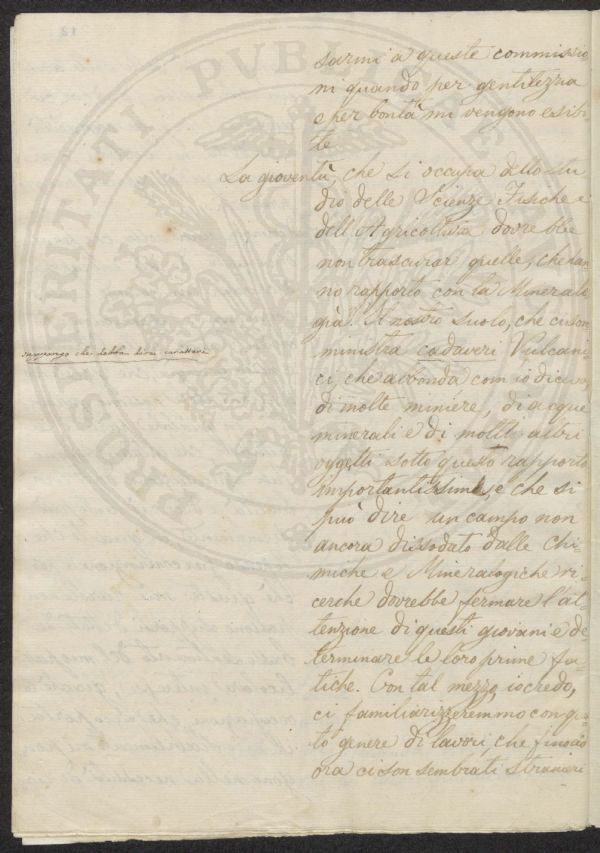 sarmi a queste commissio
ni quando per gentilezza
e per bontà mi vengono esibi
te
La gioventù, che si occupa dello stu
dio delle Scienze Fisiche e
dell'Agricoltura dovrebbe
non trascurar quelle, che han
no rapporto con la Mineralo
gia. Il nostro suolo, che ci som
ministra cadaveri Vulcani
ci, che abbonda com io diceva,
di molte miniere, di acque
minerali e di molti altri
oggetti sotto questo rapporto
importantissimi, e che si
può dire un campo non
ancora dissodato dalle chi=
miche e Mineralogiche ri=
cerche dovrebbe fermare l'at=
tenzione di questi giovani e de=
terminare le loro prime fa=
tiche. Con tal mezzo, io credo,
ci familiarizzeremmo con que
sto genere di lavori, che fino ad
ora ci son sembrati stranieri
suppongo che debba dirsi caratteri
PROSPERITATI PVBLICAE